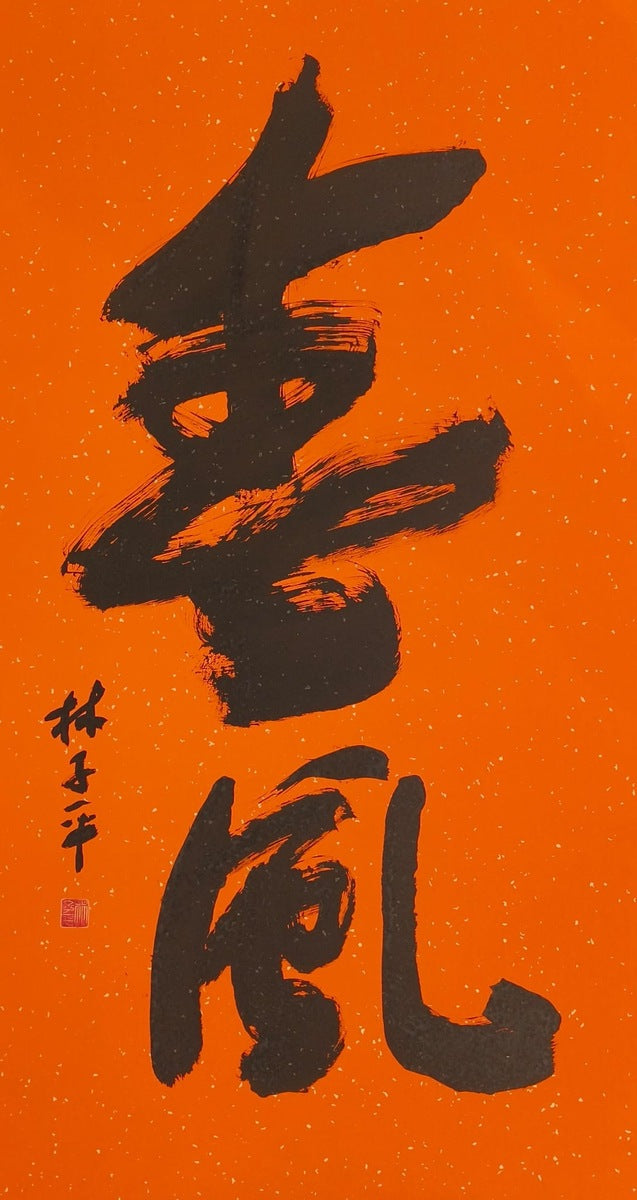 春風
林子平